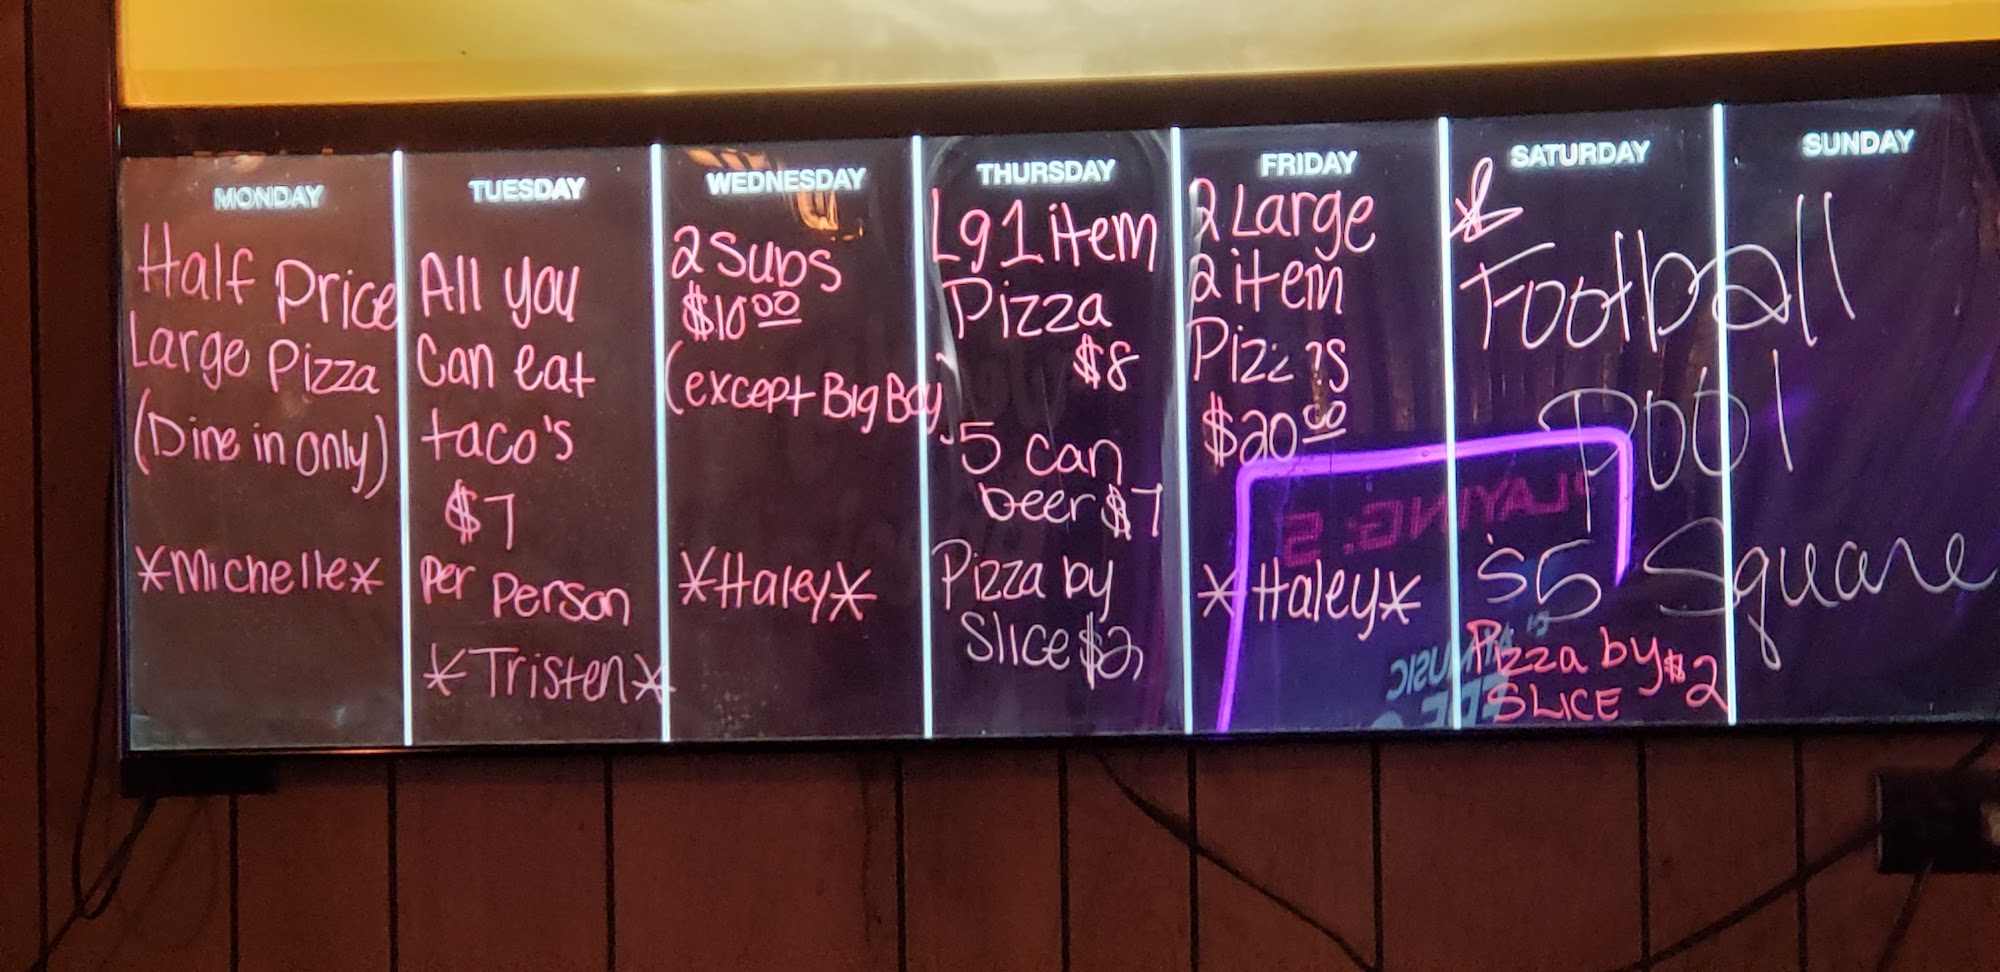 MONDAY
Half Price
Large Pizza
(Dine in only)
*Michelle*
TUESDAY
All you
Can eat
taco's
$7
Per Person
*Tristen*
WEDNESDAY
2 Subs
$10 00
(except Big Boy)
*Haley*
THURSDAY
Lg 1 item
Pizza
$8
5 can
beer $7
Pizza by
slice $2
FRIDAY
2 Large
2 item
Pizz s
$20 00
*Haley*
SATURDAY
SUNDAY
Football
Pool
$5 Square
Pizza by $2
SLICE
PLAYING: S
MUSIC